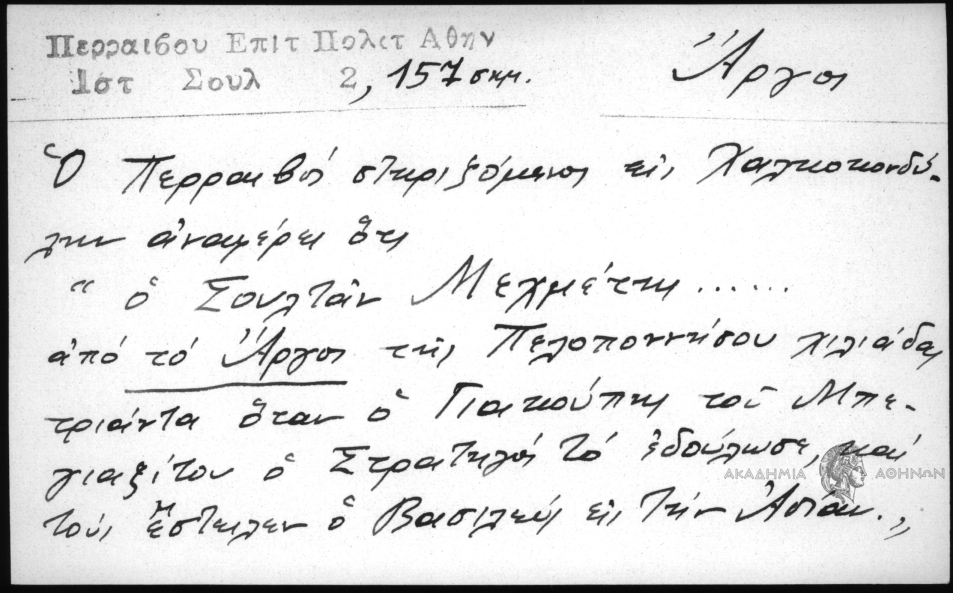 Περραιβου Επιτ Πολετ Αθην
Ιστ Σουλ 2, 157 σημ.
Ἄργος
Ὁ Περραιβός στηριζόμενος εἰς Χαλκοκονδύ-
λην ἀναφέρει ὅτι
"ὁ Σουλτάν Μεχμέτης ......
ἀπό τό Ἄργος τῆς Πελοποννήσου χιλιάδας
τριάντα ὅταν ὁ Γιακούπης τοῦ Μπε-
γιαζίτου ὁ Στρατηγός τό ἐδούλωσε, καί
τούς ἤστειλεν ὁ Βασιλεύς εἰς τήν Ἀσίαν.„
ΑΚΑΔΗΜΙΑ ΑΘΗΝΩΝ